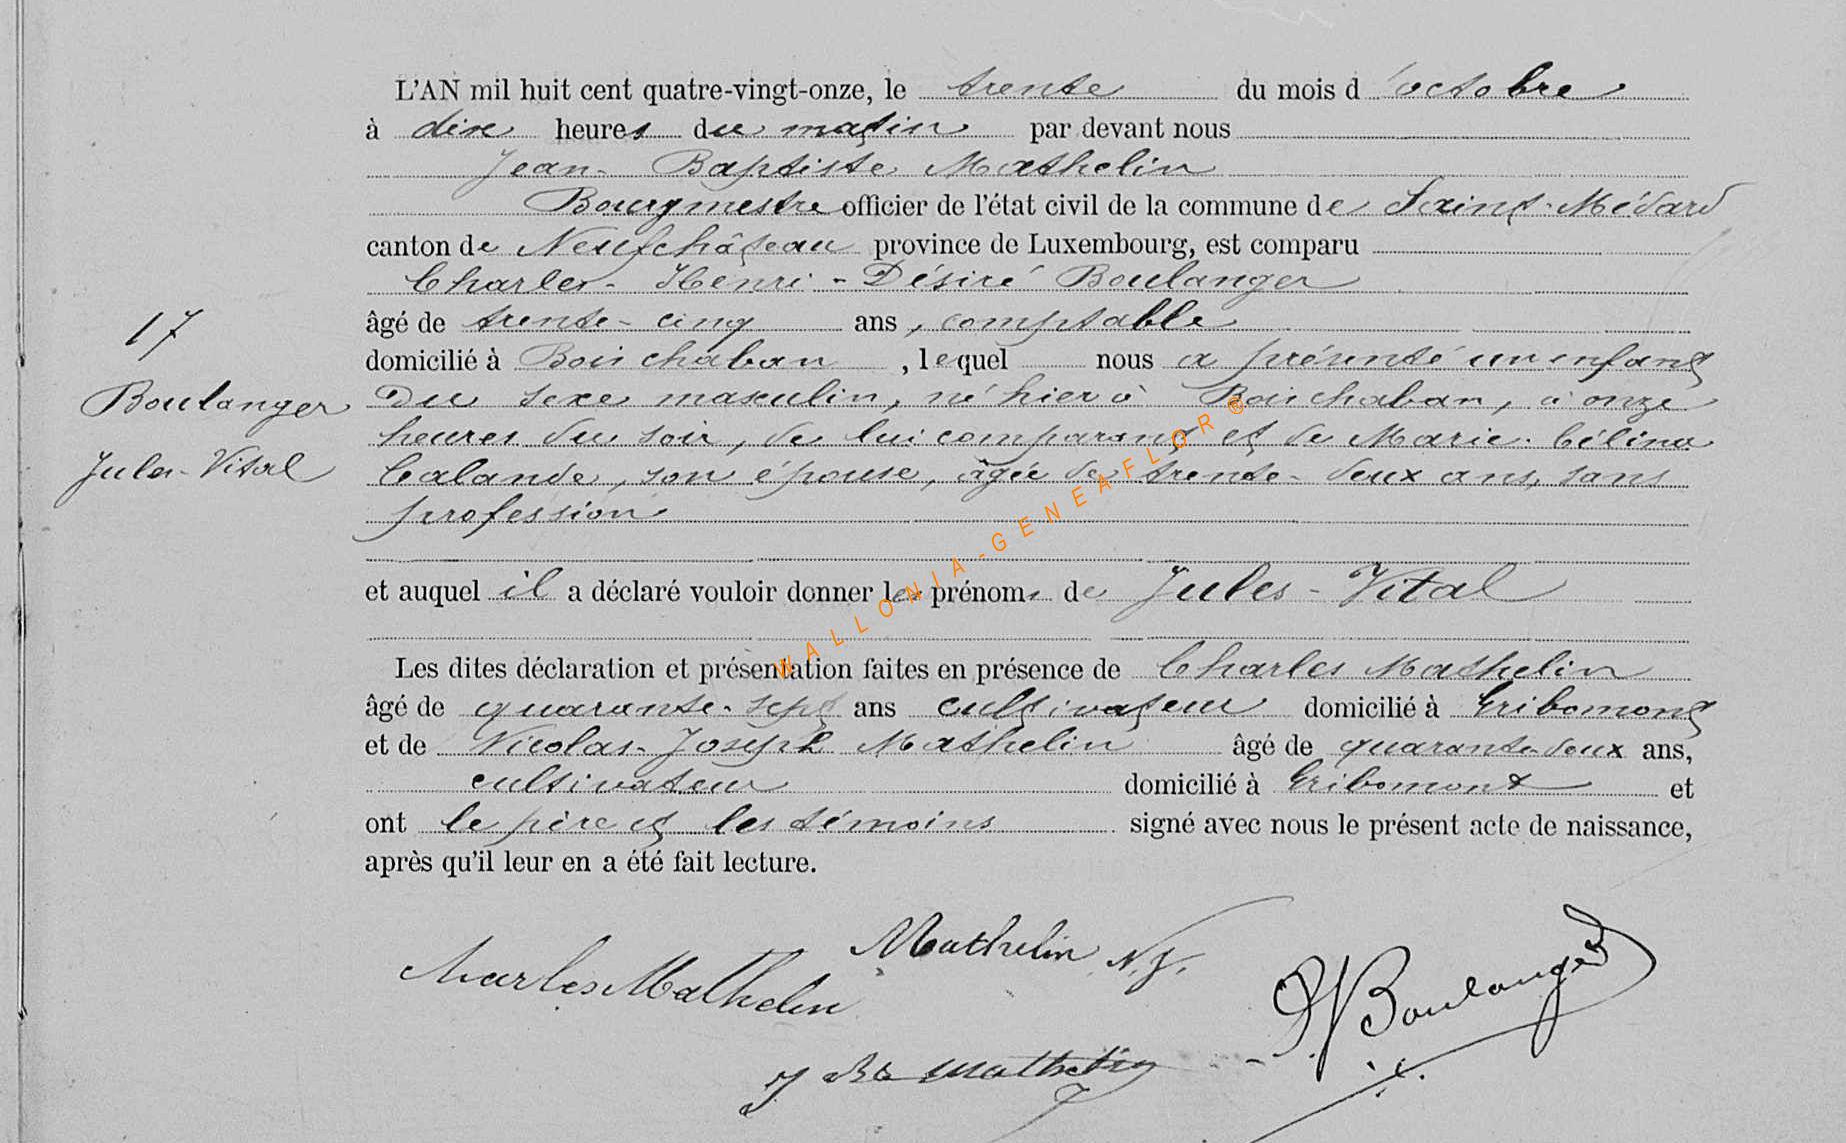 L'AN mil huit cent quatre-vingt-onze, le trente du mois d'octobre
à dix heures du matin par devant nous
Jean-Baptiste Mathelin
Bourgmestre officier de l'état civil de la commune de Saint-Médard
canton de Neufchâteau province de Luxembourg, est comparu
Charles-Henri-Désiré Boulanger
âgé de trente-cinq ans, comptable
domicilié à Boischaban, lequel nous a présenté un enfant
Du sexe masculin, né hier à Boischaban, à onze
heures du soir, de lui comparant et de Marie-Célina
Calande, son épouse, âgée de trente-deux ans, sans
profession
et auquel il a déclaré vouloir donner les prénoms de Jules-Vital
Les dites déclaration et présentation faites en présence de Charles Mathelin
âgé de quarante-sept ans cultivateur domicilié à Gribomont
et de Nicolas-Joseph Mathelin âgé de quarante-deux ans,
cultivateur domicilié à Gribomont et
ont le père et les témoins signé avec nous le présent acte de naissance,
après qu'il leur en a été fait lecture.
17
Boulanger
Jules-Vital
Mathelin N.J.
Charles Mathelin
Boulanger
J Bte Mathelin
WALLONIA-GENEAFLOR®